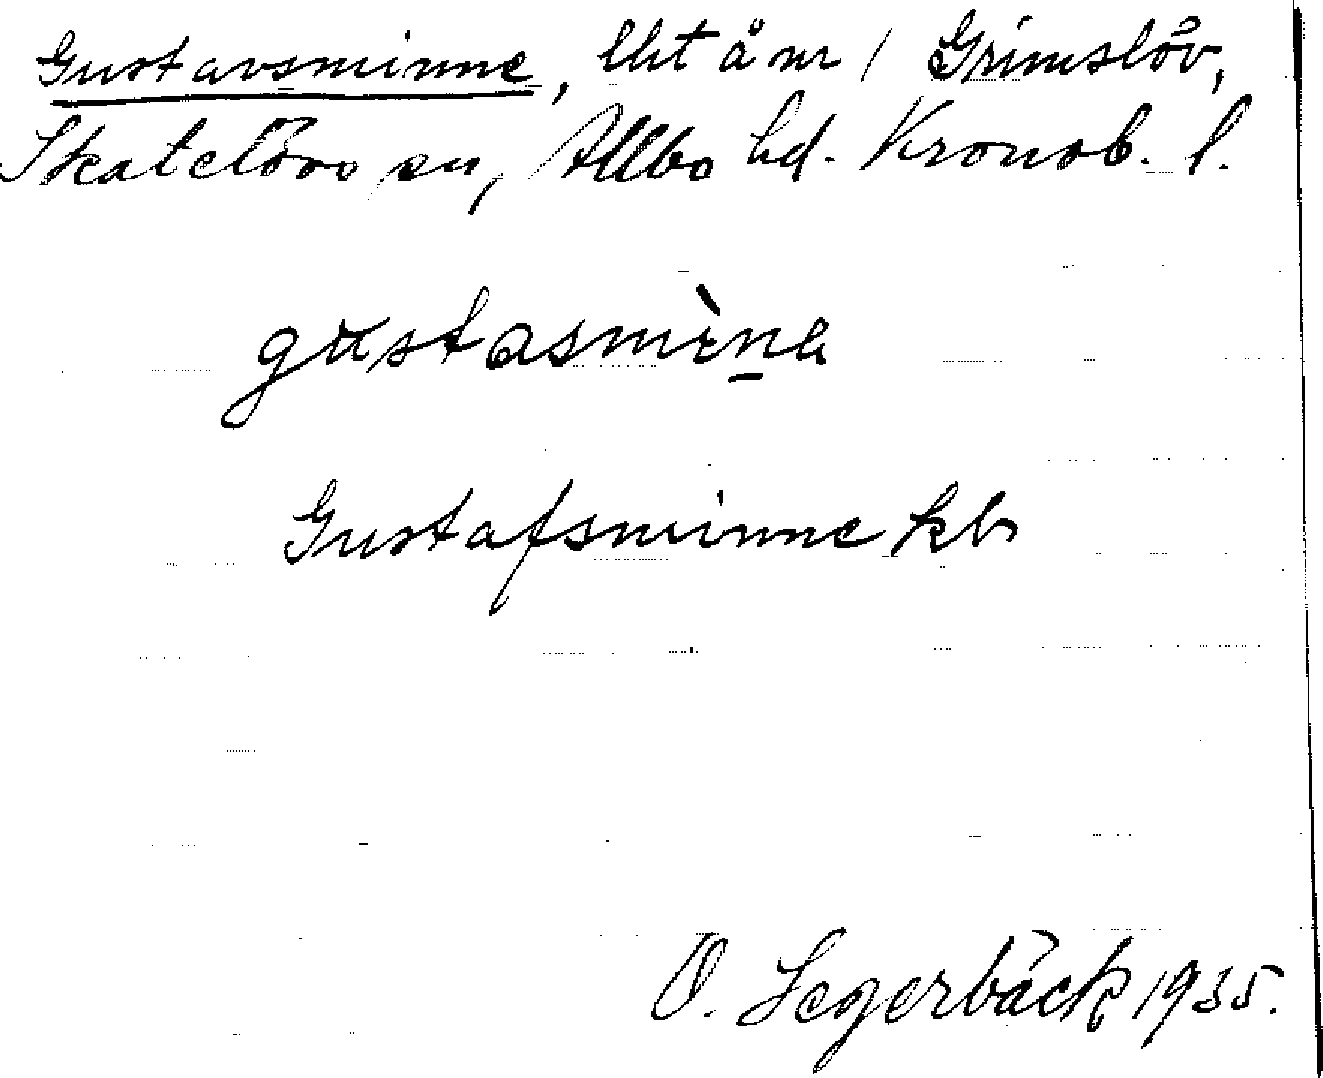 Gustavsminne, lht å nr 1 Grimslöv,
Skatelövs sn, Allbo hd. Kronob. l.
gustasmìna
Gustafsminne kb
O. Segerbäck 1935.